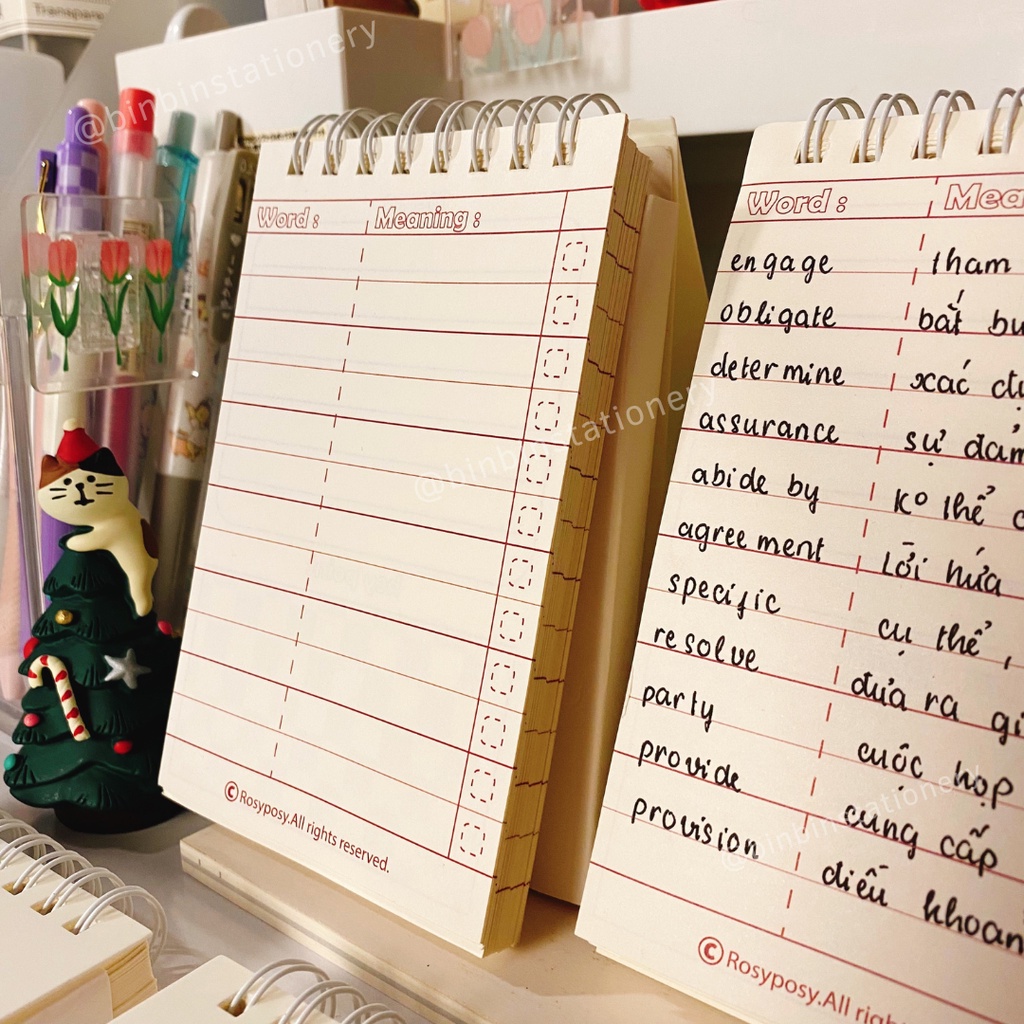 Transpare
@binbinstationery
Word : Meaning :
@binbinstationery
©Rosyposy.All rights reserved.
Word : Mea
engage tham
obligate bắt bu
determine xác đị
assurance sự đảm
abide by Ko thể
agreement lời hứa
specific cụ thể,
resolve đưa ra gi
party cuộc họp
provide cung cấp
provision điều khoản
@binbinstationery
©Rosyposy.All righ